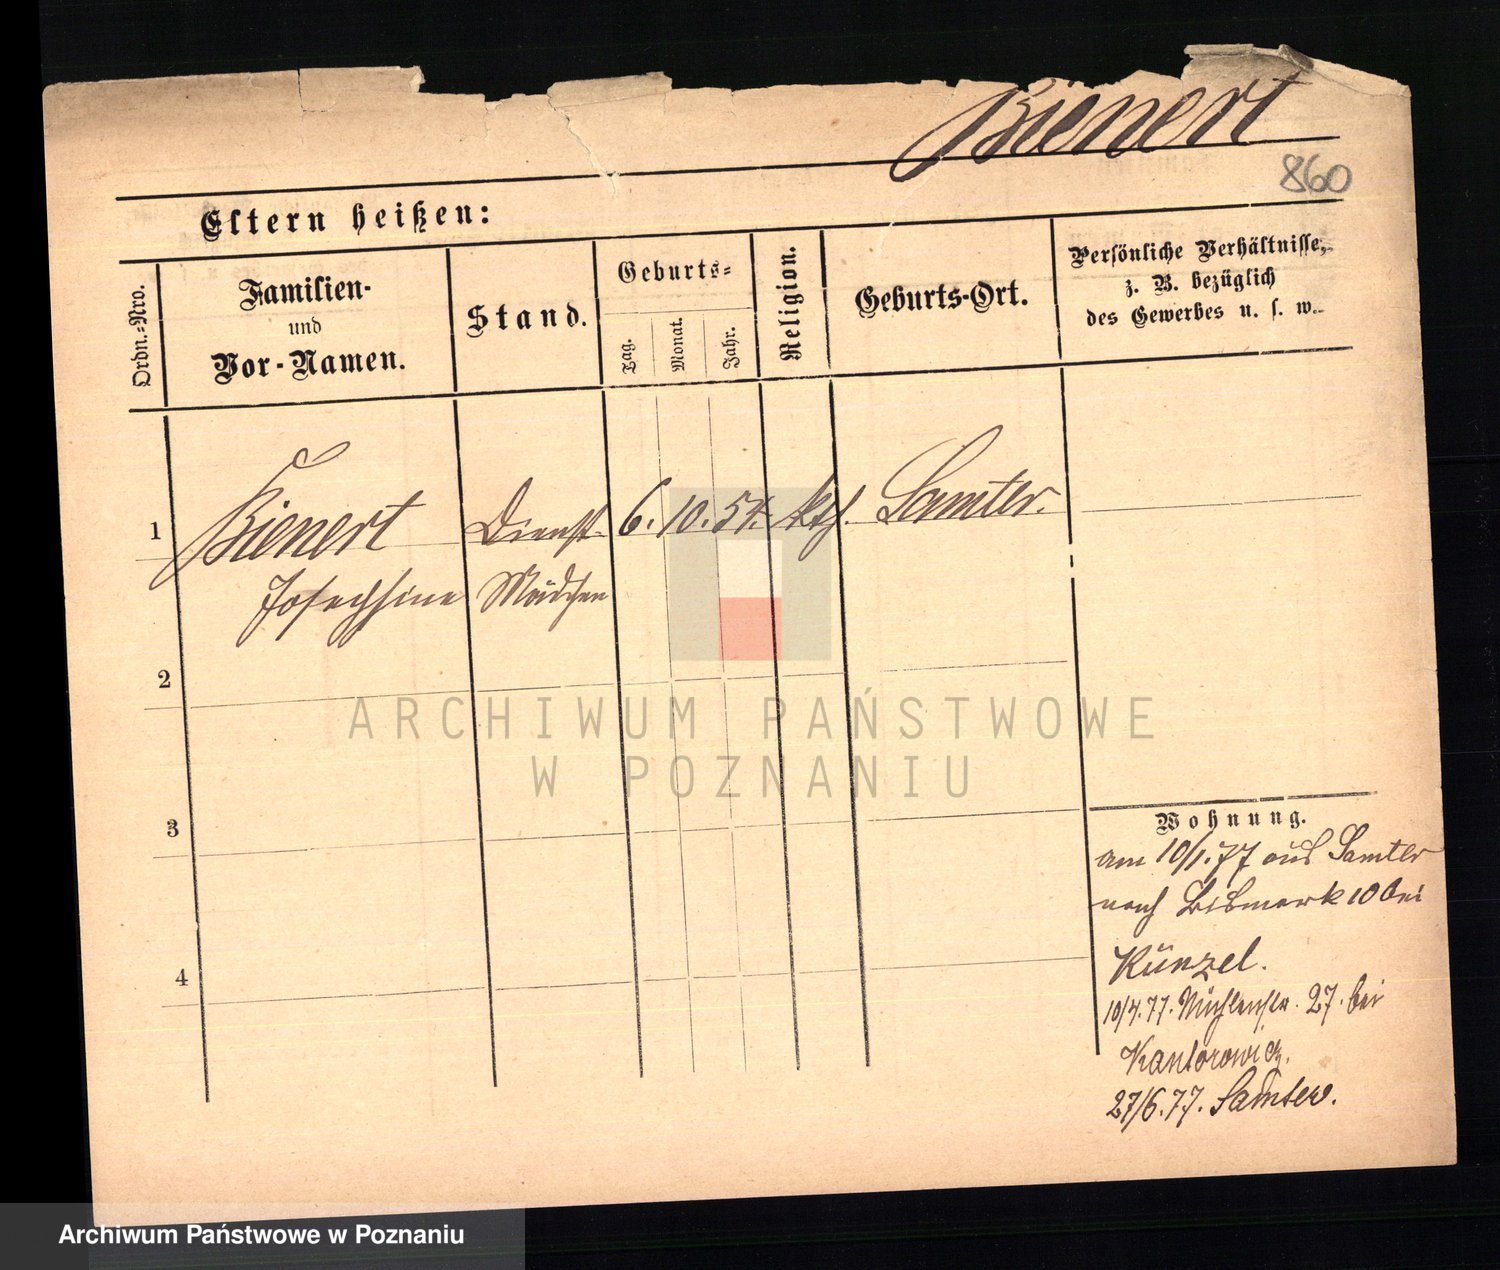 Bienert
860
Eltern heißen:
Ordn.-Nro.
Familien-
und
Vor-Namen.
Stand.
Geburts-
Tag.
Monat.
Jahr.
Religion.
Geburts-Ort.
Persönliche Verhältnisse,
z. B. bezüglich
des Gewerbes u. s. w.
1 Bienert Dienst- 6. 10. 54. kth. Samter.
Josephine Mädchen
2
3
4
Wohnung.
am 10/1.77 aus Samter
nach Bismark 10 bei
Künzel.
10/4.77. Mühlenstr. 27. bei
Kantorowicz.
27/6.77. Samter.
ARCHIWUM PAŃSTWOWE
W POZNANIU
Archiwum Państwowe w Poznaniu